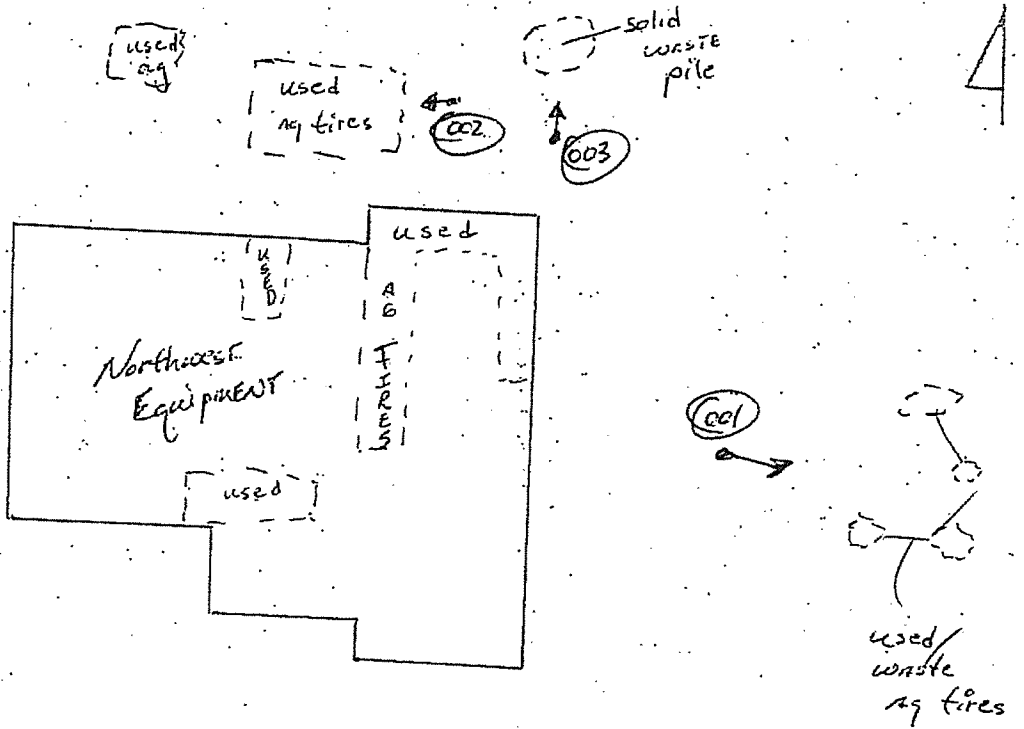 used
ag
used
Ag tires
002
solid
waste
pile
003
used
USED
AG TIRES
Northwest
Equipment
used
001
used/
waste
Ag tires